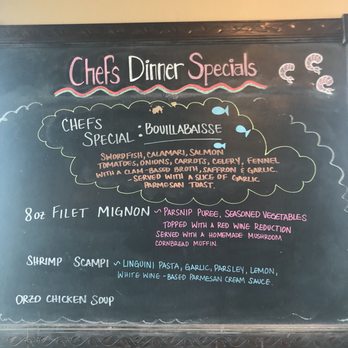 Chefs Dinner Specials
CHEFS
SPECIAL : BOUILLABAISSE
SWORDFISH, CALAMARI, SALMON
TOMATOES, ONIONS, CARROTS, CELERY, FENNEL
WITH A CLAM-BASED BROTH, SAFFRON & GARLIC.
- SERVED WITH A SLICE OF GARLIC
PARMESAN TOAST.
8oz FILET MIGNON ~ PARSNIP PUREE, SEASONED VEGETABLES
TOPPED WITH A RED WINE REDUCTION
SERVED WITH A HOMEMADE MUSHROOM
CORNBREAD MUFFIN
SHRIMP SCAMPI ~ LINGUINI PASTA, GARLIC, PARSLEY, LEMON,
WHITE WINE-BASED PARMESAN CREAM SAUCE.
ORZO CHICKEN SOUP